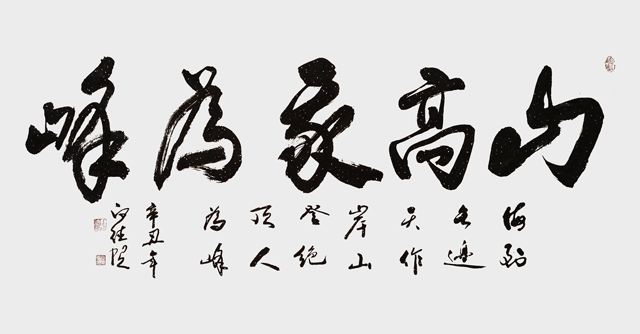 山高我為峰
海到
无邊
天作
岸山
登絶
頂人
為峰
辛丑年